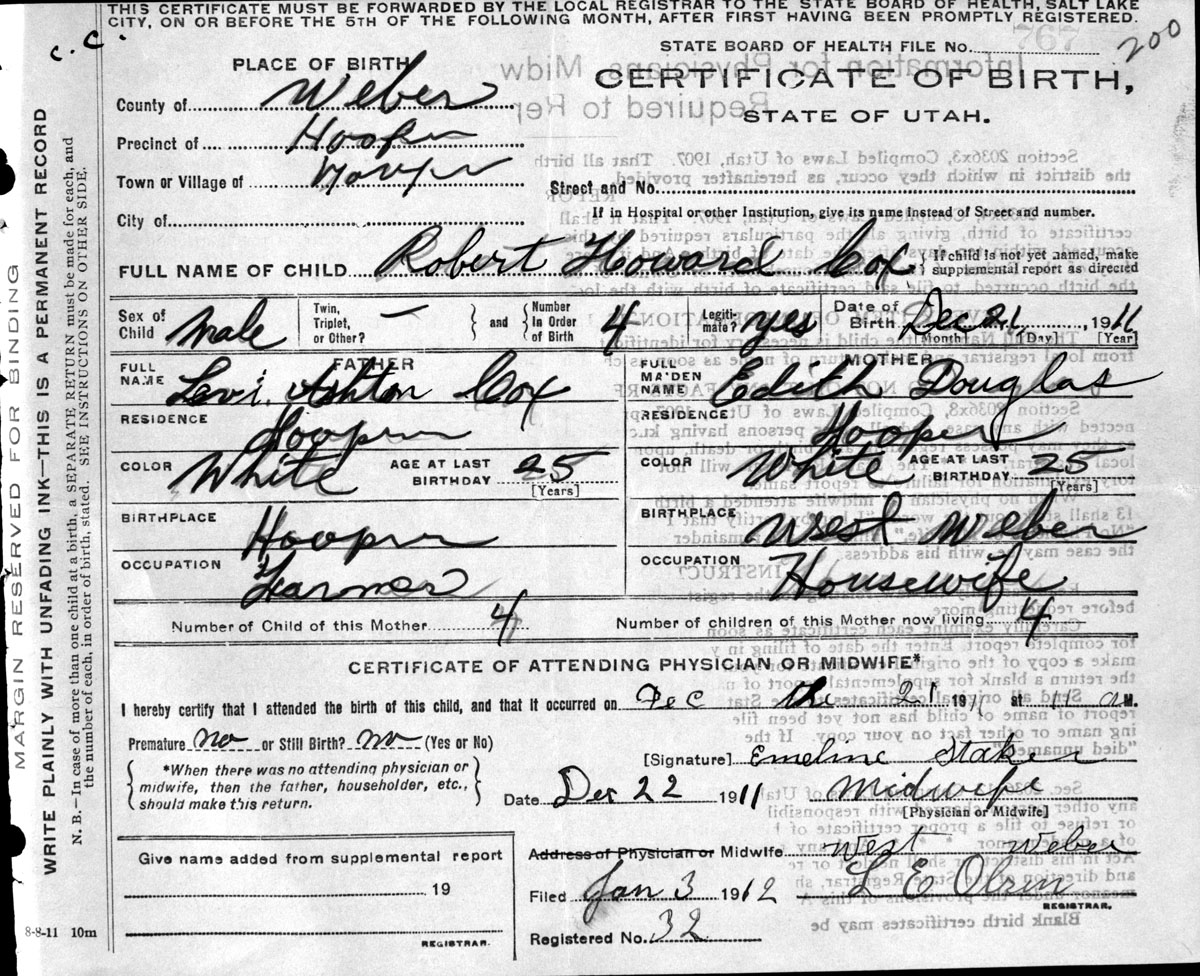 THIS CERTIFICATE MUST BE FORWARDED BY THE LOCAL REGISTRAR TO THE STATE BOARD OF HEALTH, SALT LAKE
CITY, ON OR BEFORE THE 5TH OF THE FOLLOWING MONTH, AFTER FIRST HAVING BEEN PROMPTLY REGISTERED.
C. C.
STATE BOARD OF HEALTH FILE No. 767
200
PLACE OF BIRTH
CERTIFICATE OF BIRTH,
STATE OF UTAH.
County of Weber
Precinct of Hooper
Town or Village of Hooper
Street and No.
City of
If in Hospital or other Institution, give its name instead of Street and number.
FULL NAME OF CHILD Robert Howard Cox
{ If child is not yet named, make
supplemental report as directed
Sex of Child Male
Twin, Triplet, or Other? — } and { Number In Order of Birth 4
Legiti-mate? yes
Date of Birth Dec 21, 1911
[Month] [Day] [Year]
FATHER
FULL NAME Levi Ashton Cox
RESIDENCE Hooper
COLOR White AGE AT LAST BIRTHDAY 25
[Years]
BIRTHPLACE Hooper
OCCUPATION Farmer
MOTHER
FULL MAIDEN NAME Edith Douglas
RESIDENCE Hooper
COLOR White AGE AT LAST BIRTHDAY 25
[Years]
BIRTHPLACE West Weber
OCCUPATION Housewife
Number of Child of this Mother 4 Number of children of this Mother now living 4
CERTIFICATE OF ATTENDING PHYSICIAN OR MIDWIFE*
I hereby certify that I attended the birth of this child, and that it occurred on Dec the 21 1911 at 11 a M.
Premature no or Still Birth? no (Yes or No)
[Signature] Emeline Staker
{ *When there was no attending physician or
midwife, then the father, householder, etc.,
should make this return. }
Date Dec 22 1911 Midwife
[Physician or Midwife]
Address of Physician or Midwife West Weber
Give name added from supplemental report
19
REGISTRAR.
Filed Jan 3 1912 L E Olsen
REGISTRAR.
Registered No. 32
8-8-11 10m
MARGIN RESERVED FOR BINDING
WRITE PLAINLY WITH UNFADING INK—THIS IS A PERMANENT RECORD
N. B.—In case of more than one child at a birth, a SEPARATE RETURN must be made for each, and
the number of each, in order of birth, stated. SEE INSTRUCTIONS ON OTHER SIDE.